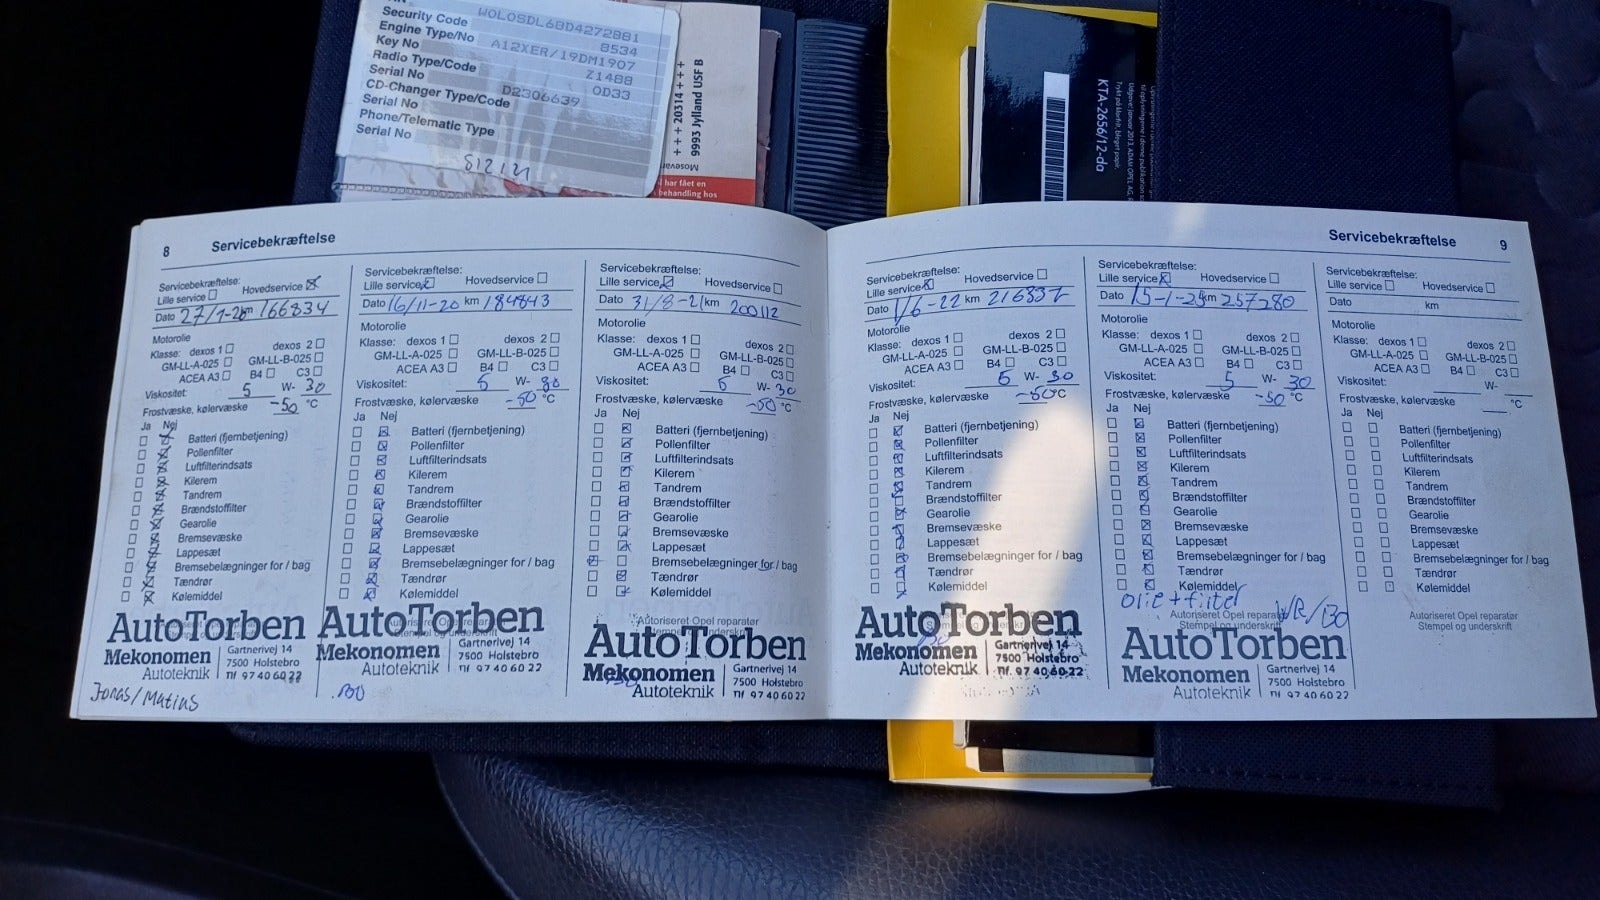 Security Code W0L0SDL68D4272881
Engine Type/No 8534
Key No A12XER/19DM1907
Radio Type/Code Z1488
Serial No 0D33
CD-Changer Type/Code D2306639
Serial No
Phone/Telematic Type
Serial No
+ + + 20314 + + +
9993 Jylland USF B
har fået en
behandling hos
KTA-2656/12-da
8 Servicebekræftelse
Servicebekræftelse:
Lille service Hovedservice
Dato 27/1-20 km 166834
Motorolie
Klasse: dexos 1 dexos 2
GM-LL-A-025 GM-LL-B-025
ACEA A3 B4 C3
Viskositet: 5 W- 30
Frostvæske, kølervæske -50 °C
Ja Nej
Batteri (fjernbetjening)
Pollenfilter
Luftfilterindsats
Kilerem
Tandrem
Brændstoffilter
Gearolie
Bremsevæske
Lappesæt
Bremsebelægninger for / bag
Tændrør
Kølemiddel
AutoTorben
Mekonomen
Autoteknik
Gartnerivej 14
7500 Holstebro
Tlf 97 40 60 22
Jonas/Matias
Servicebekræftelse:
Lille service Hovedservice
Dato 16/11-20 km 184843
Motorolie
Klasse: dexos 1 dexos 2
GM-LL-A-025 GM-LL-B-025
ACEA A3 B4 C3
Viskositet: 5 W- 30
Frostvæske, kølervæske -50 °C
Ja Nej
Batteri (fjernbetjening)
Pollenfilter
Luftfilterindsats
Kilerem
Tandrem
Brændstoffilter
Gearolie
Bremsevæske
Lappesæt
Bremsebelægninger for / bag
Tændrør
Kølemiddel
AutoTorben
Mekonomen
Autoteknik
Gartnerivej 14
7500 Holstebro
Tlf 97 40 60 22
Servicebekræftelse:
Lille service Hovedservice
Dato 31/8-21 km 200112
Motorolie
Klasse: dexos 1 dexos 2
GM-LL-A-025 GM-LL-B-025
ACEA A3 B4 C3
Viskositet: 5 W- 30
Frostvæske, kølervæske -50 °C
Ja Nej
Batteri (fjernbetjening)
Pollenfilter
Luftfilterindsats
Kilerem
Tandrem
Brændstoffilter
Gearolie
Bremsevæske
Lappesæt
Bremsebelægninger for / bag
Tændrør
Kølemiddel
Autoriseret Opel reparatør
Stempel og underskrift
AutoTorben
Mekonomen
Autoteknik
Gartnerivej 14
7500 Holstebro
Tlf 97 40 60 22
Servicebekræftelse 9
Servicebekræftelse:
Lille service Hovedservice
Dato 1/6-22 km 216837
Motorolie
Klasse: dexos 1 dexos 2
GM-LL-A-025 GM-LL-B-025
ACEA A3 B4 C3
Viskositet: 5 W- 30
Frostvæske, kølervæske -50°C
Ja Nej
Batteri (fjernbetjening)
Pollenfilter
Luftfilterindsats
Kilerem
Tandrem
Brændstoffilter
Gearolie
Bremsevæske
Lappesæt
Bremsebelægninger for / bag
Tændrør
Kølemiddel
AutoTorben
Mekonomen
Autoteknik
Gartnerivej 14
7500 Holstebro
Tlf 97 40 60 22
Servicebekræftelse:
Lille service Hovedservice
Dato 15-1-25 km 257280
Motorolie
Klasse: dexos 1 dexos 2
GM-LL-A-025 GM-LL-B-025
ACEA A3 B4 C3
Viskositet: 5 W- 30
Frostvæske, kølervæske -50 °C
Ja Nej
Batteri (fjernbetjening)
Pollenfilter
Luftfilterindsats
Kilerem
Tandrem
Brændstoffilter
Gearolie
Bremsevæske
Lappesæt
Bremsebelægninger for / bag
Tændrør
Kølemiddel
Olie + filter
Autoriseret Opel reparatør
Stempel og underskrift
AutoTorben
Mekonomen
Autoteknik
Gartnerivej 14
7500 Holstebro
Tlf 97 40 60 22
Servicebekræftelse:
Lille service Hovedservice
Dato km
Motorolie
Klasse: dexos 1 dexos 2
GM-LL-A-025 GM-LL-B-025
ACEA A3 B4 C3
Viskositet: W-
Frostvæske, kølervæske °C
Ja Nej
Batteri (fjernbetjening)
Pollenfilter
Luftfilterindsats
Kilerem
Tandrem
Brændstoffilter
Gearolie
Bremsevæske
Lappesæt
Bremsebelægninger for / bag
Tændrør
Kølemiddel
Autoriseret Opel reparatør
Stempel og underskrift